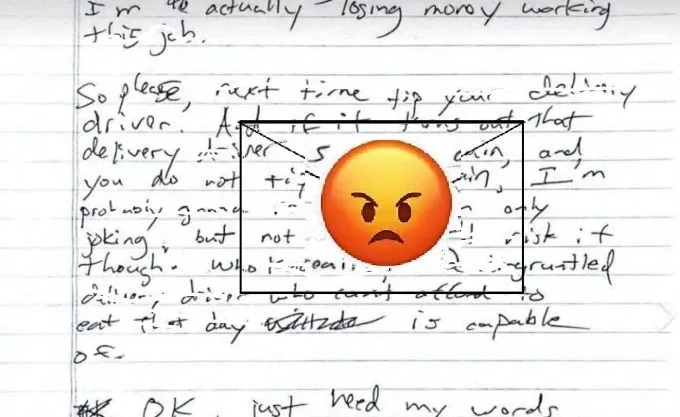 I'm actually losing money working
this job.
So please, next time tip your delivery
driver. And if it turns out that
delivery driver again, and
you do not I'm
probably gonna only
joking, but not risk it
though. Who disgruntled
delivery driver who can't afford to
eat that day is capable
of.
OK, just heed my words